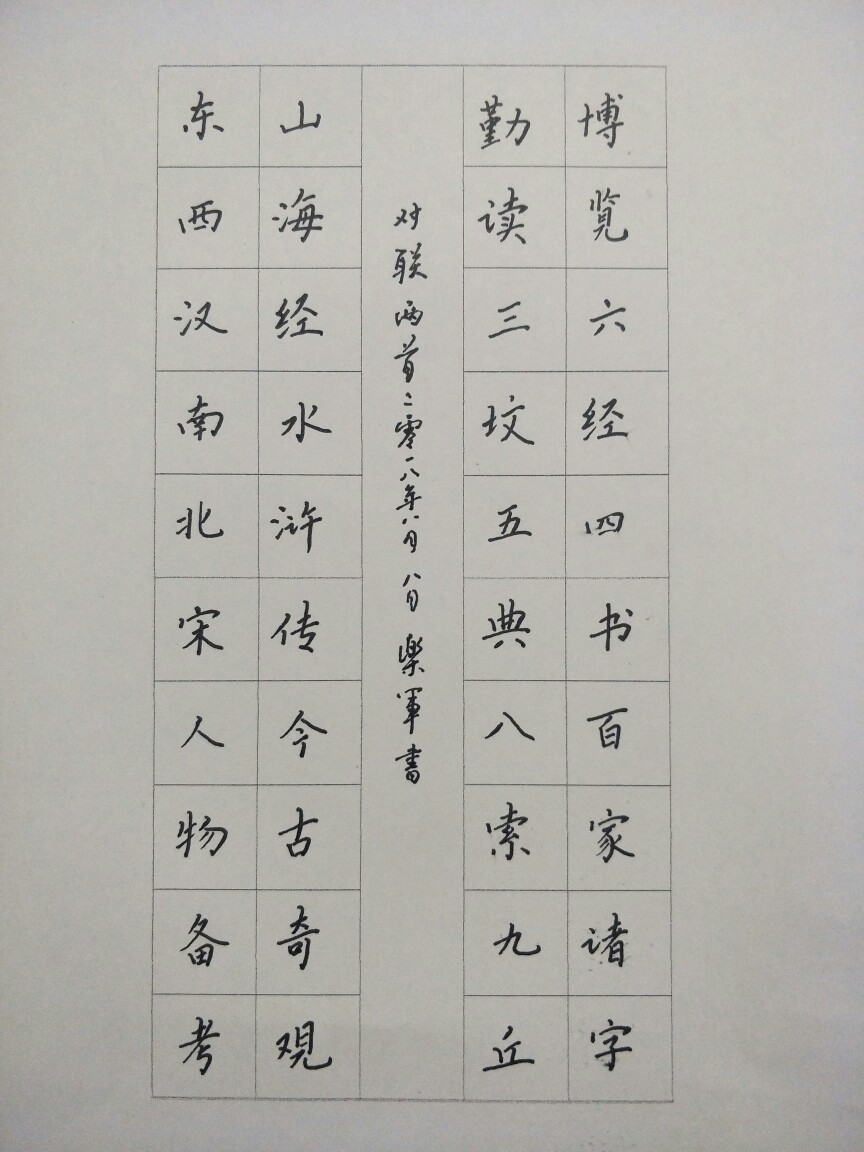 博览六经四书百家诸字
勤读三坟五典八索九丘
对联两首二零一八年八月八日乐军书
山海经水浒传今古奇观
东西汉南北宋人物备考